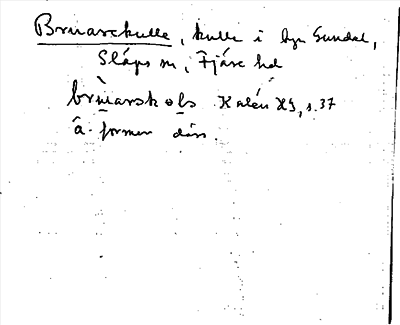 Bruarekulle, kulle i byn Sundal,
Släps sn, Fjäre hd
brùarskols Kalén XI, s. 37
â-formen därs.